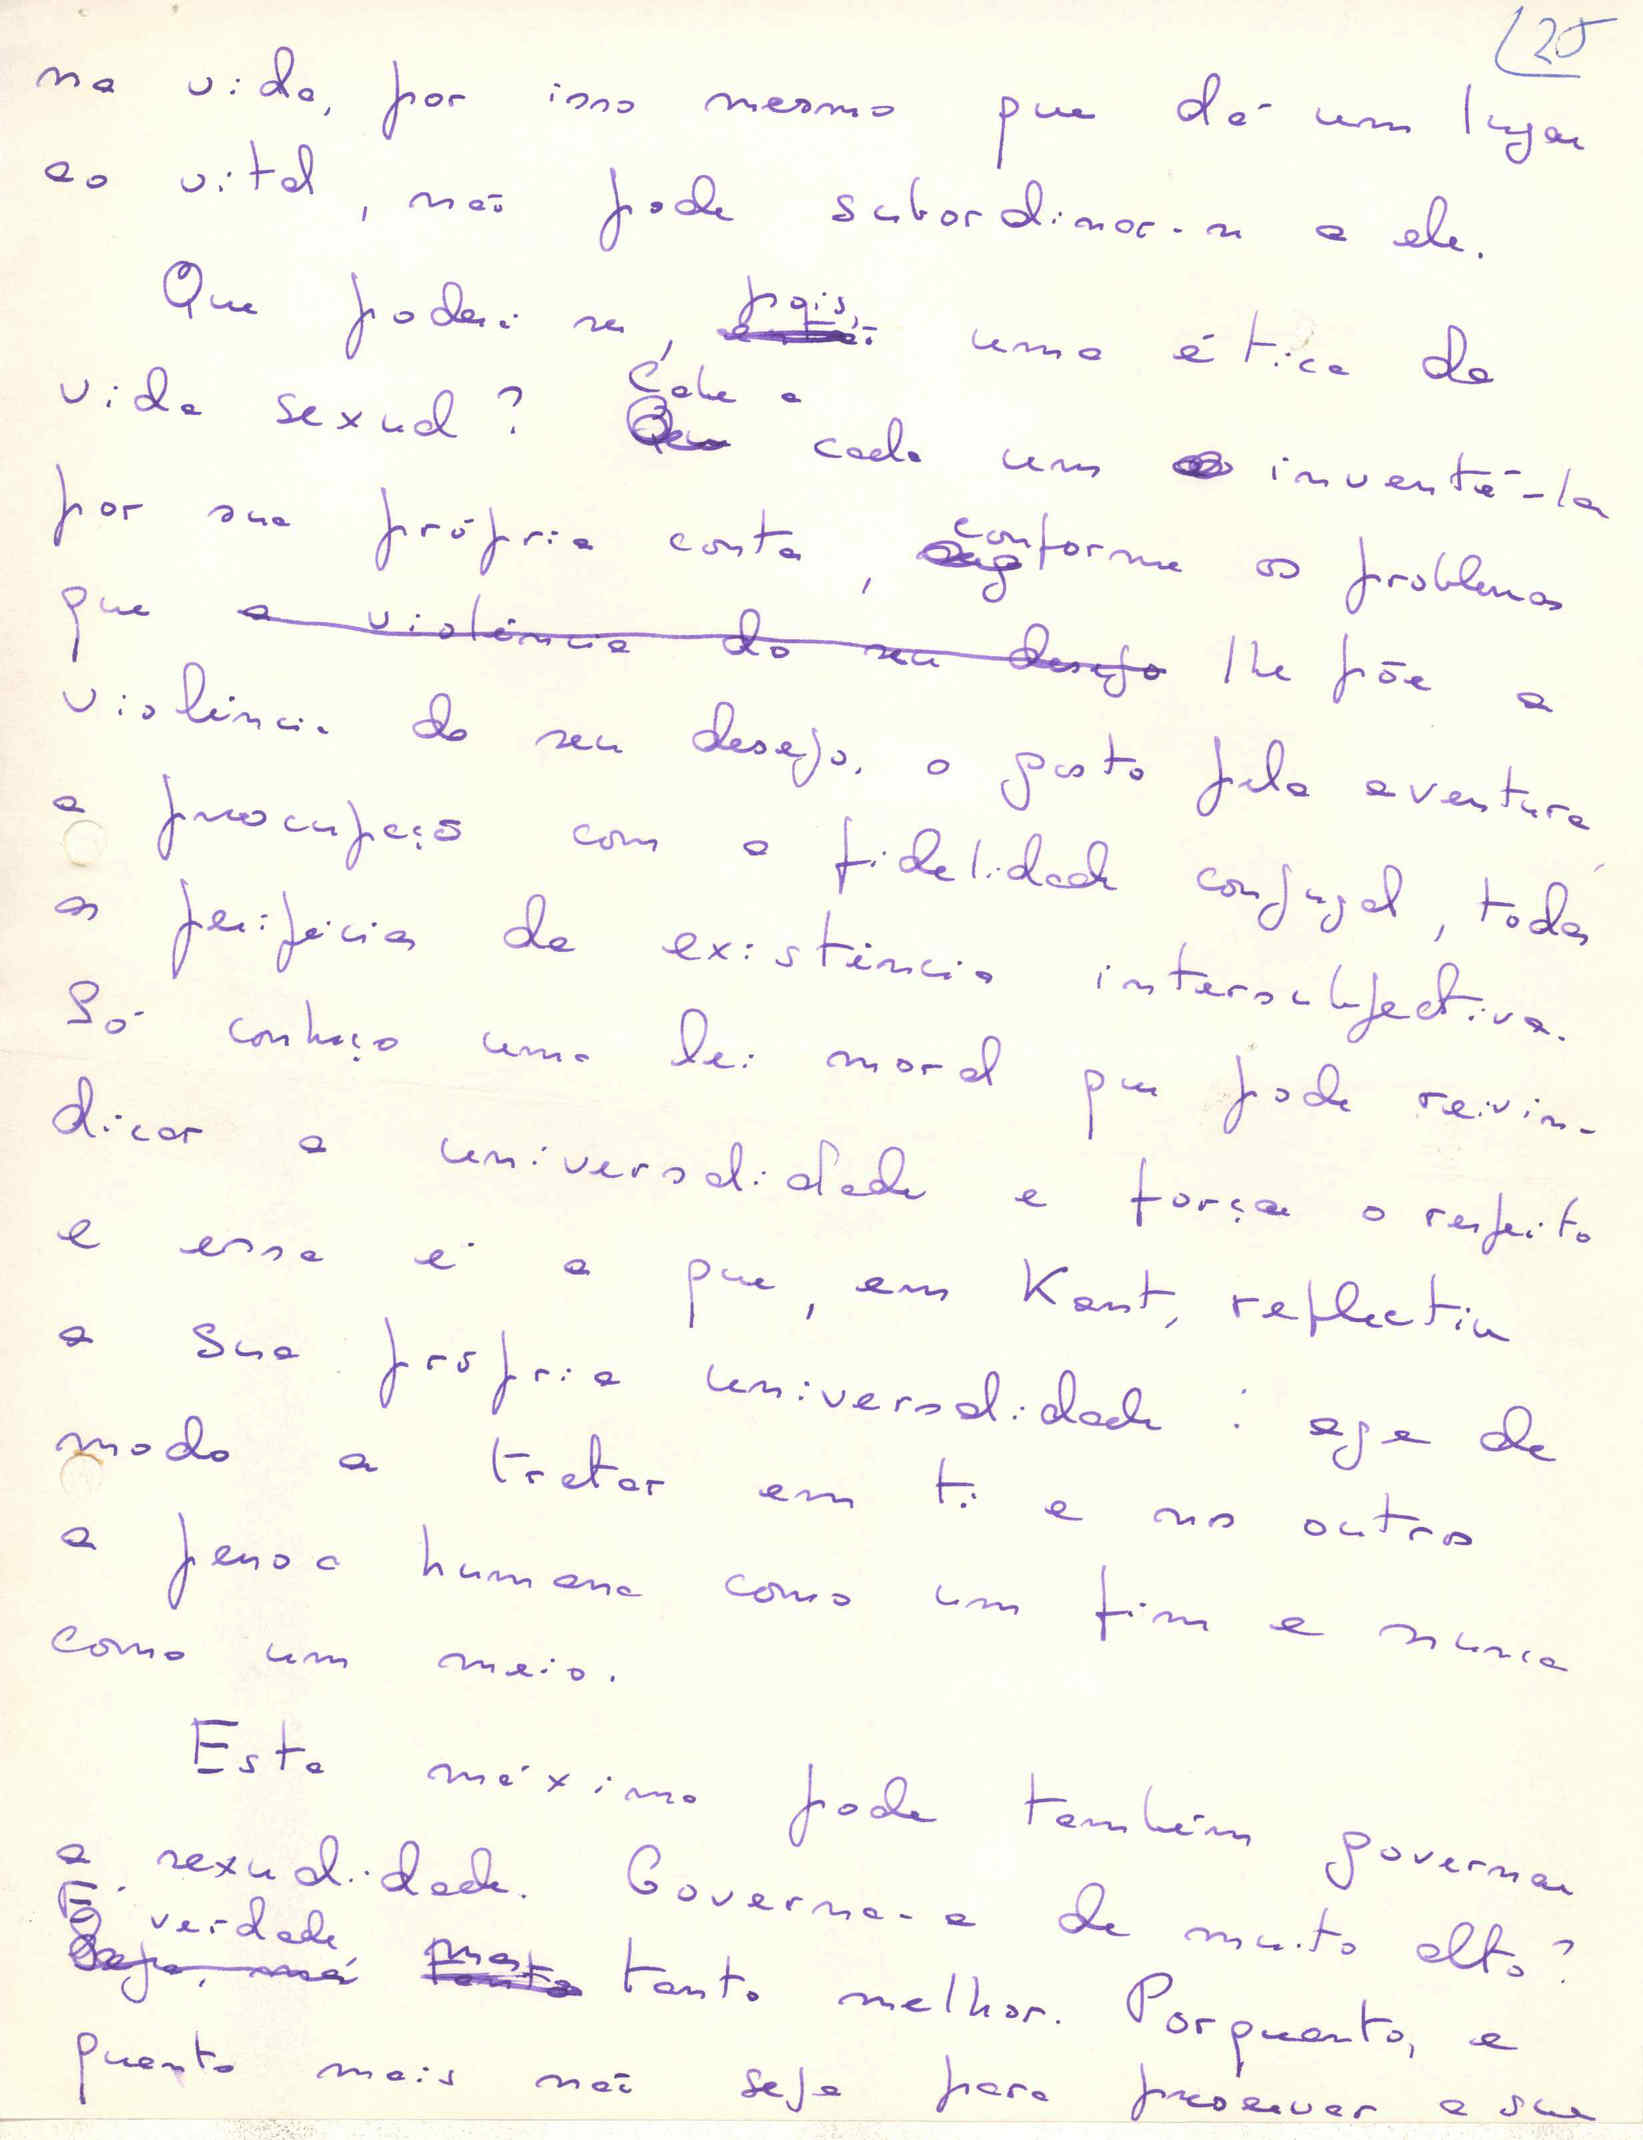 25
na vida, por isso mesmo que dá um lugar
ao vital, não pode subordinar-se a ele.
Que poderá ser, pois, uma ética da
vida sexual? Cabe a cada um inventá-la
por sua própria conta, conforme os problemas
que a violência do seu desejo lhe põe a
violência do seu desejo, o gosto pela aventura,
a preocupação com a fidelidade conjugal, todas
as peripécias da existência intersubjectiva.
Só conheço uma lei moral que pode reivin-
dicar a universalidade e forçar o respeito
e essa é a que, em Kant, reflectiu
a sua própria universalidade: age de
modo a tratar em ti e no outro
a pessoa humana como um fim e nunca
como um meio.
Esta máxima pode também governar
a sexualidade. Governa-a de muito alto?
É verdade, mas tanto melhor. Porquanto, e
quanto mais não seja para preservar a sua